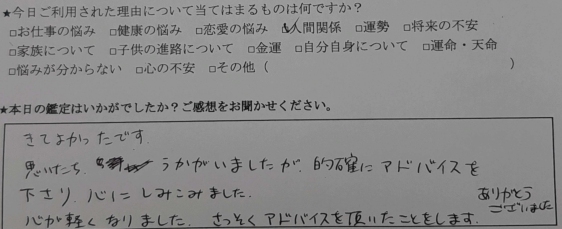 ★今日ご利用された理由について当てはまるものは何ですか?
□お仕事の悩み □健康の悩み □恋愛の悩み ☑人間関係 □運勢 □将来の不安
□家族について □子供の進路について □金運 □自分自身について □運命・天命
□悩みが分からない □心の不安 □その他( )
★本日の鑑定はいかがでしたか?ご感想をお聞かせください。
きてよかったです.
思いたち. うかがいましたが. 的確にアドバイスを
下さり. 心にしみこみました.
心が軽くなりました. さっそくアドバイスを頂いたことをします.
ありがとう
ございました